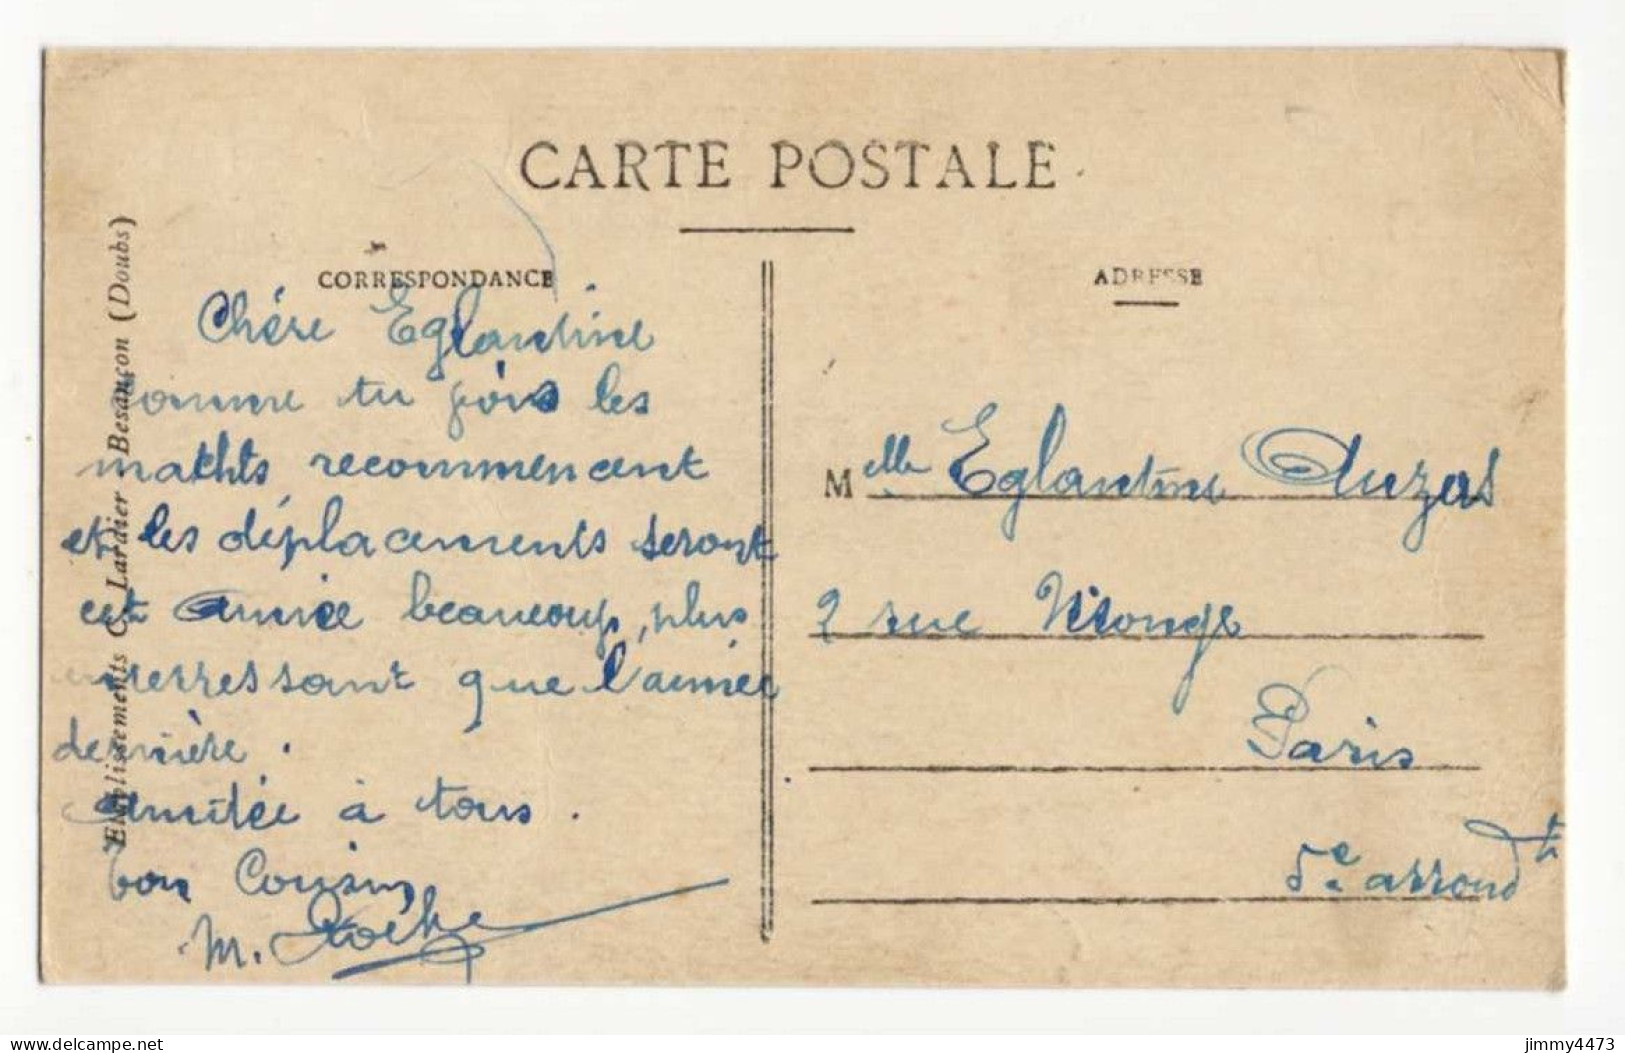 CARTE POSTALE
CORRESPONDANCE
Chére Eglantine
comme tu vois les
mathts recommencent
et les déplacements seront
cet année beaucoup plus
interressant que l'année
dernière.
Amitée à tous.
Ton Cousin,
M. Roche
Etablissements C. Lardier - Besançon (Doubs)
ADRESSE
Melle Eglantine Auzas
2 rue Monge
Paris
5e arrondt
delcampe.net
jimmy4473